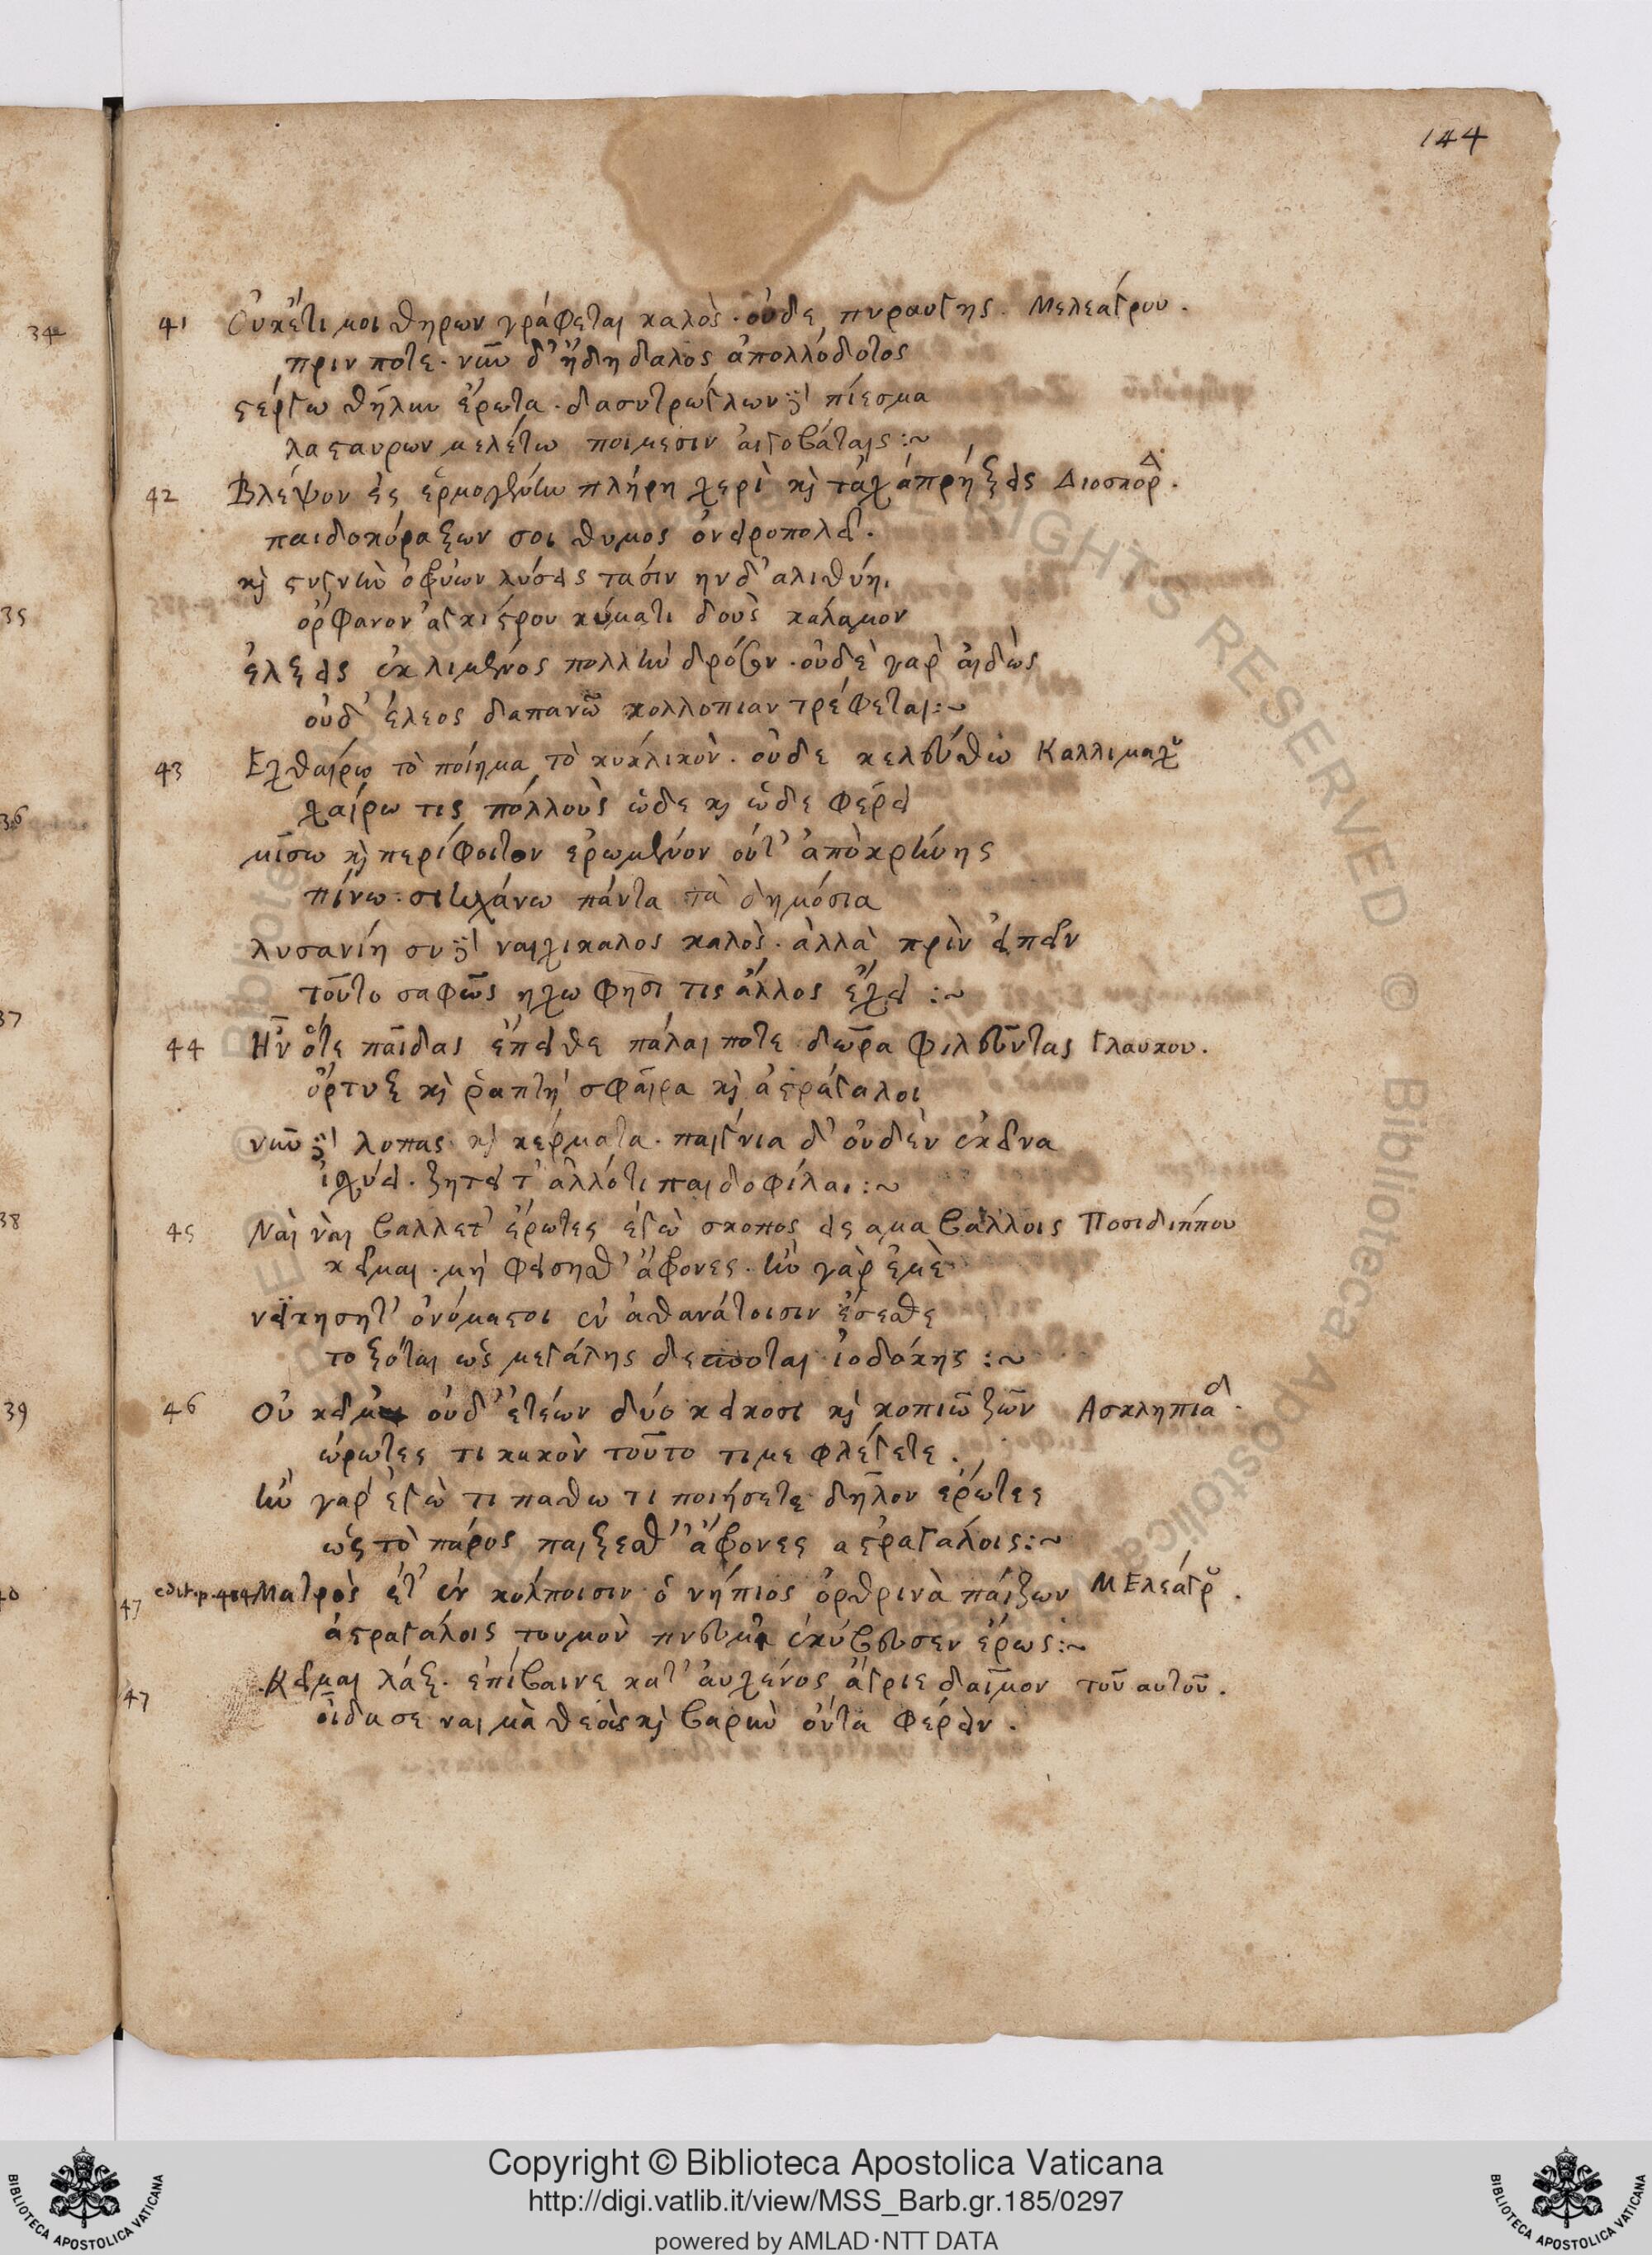 144
41 Οὐκέτι μοι θηρων γράφεται καλὸς · οὐδε πυραυγης . Μελεάγρου .
πριν ποτε · νῦν δ' ἤδη δαλὸς ἀπολλόδοτος
στέργω θῆλυν ἔρωτα · δασυτρώγλων δὲ πίεσμα
λασταυρων μελέτω ποιμεσιν αἰγοβάταις :~
42 Βλέψον ἐς ἑρμογένην πλήρη χερὶ καὶ τάχα πρήξεις Διοσκορ Δ .
παιδοκόραξων σοι θυμος ὀνειροπολεῖ .
καὶ στυγνὴν ὀφρύων λύσεις τάσιν ην δ' αλιθύηι
ὀρφανον ἀγκιστρου κύματι δοὺς κάλαμον
ἕλξεις ἐκ λιμένος πολλὴν δρόσον · οὐδὲ γαρ αἰδὼς
οὐδ' ἔλεος δαπανῶ κολλοπιαν τρέφεται :~
43 Εχθαίρω τὸ ποίημα τὸ κυκλικὸν . οὐδε κελεύθω Καλλιμαχου
χαίρω τις πολλοὺς ὧδε καὶ ὧδε φέρει
μισῶ καὶ περίφοιτον ἐρωμένον οὐτ' ἀπὸ κρήνης
πίνω · σικχάνω πάντα τὰ δημόσια
λυσανίη συ δὲ ναιχικαλος καλὸς · ἀλλὰ πρὶν εἰπεῖν
τοῦτο σαφῶς ηχω φησι τις ἄλλος ἔχει :~
44 Ἦν ὅτε παῖδας ἔπειθε πάλαι ποτε δῶρα φιλεῦντας Γλαυκου .
ὄρτυξ καὶ ῥαπτὴ σφαῖρα καὶ ἀστράγαλοι
νῦν δὲ λοπας καὶ κέρματα · παίγνια δ' οὐδὲν ἐκεῖνα
ἰσχύει · ζητεῖτ' ἀλλότι παιδοφίλαι :~
45 Ναὶ ναὶ βαλλετ' ἔρωτες ἐγὼ σκοπος εις αμα βάλλοις Ποσιδίππου
κεῖμαι · μὴ φείσησθ' ἄφρονες · ἢν γὰρ ἐμὲ
νεικησητ' ὀνόμαστοι ἐν ἀθανάτοισιν ἔσεσθε
τοξόται ὡς μεγάλης δεσποται ἰοδόκης :~
46 Οὐκ εἴμ οὐδ' ἐτέων δύο κείκοσι καὶ κοπιῶ ζῶν Ασκληπιάδ .
ὡρωτες τι κακὸν τοῦτο τι με φλέγετε .
ἢν γαρ ἐγὼ τι παθω τι ποιήσετε δῆλον ἔρωτες
ὡς τὸ πάρος παιξεσθ' ἄφρονες αστραγάλοις :~
47 edit. p. 484 Ματρὸς ἔτ' ἐν κόλποισιν ὁ νήπιος ὀρθρινὰ παίζων Μελεάγρου .
ἀστραγάλοις τουμὸν πνεῦμ' ἐκύβευσεν ἔρως :~
47 Κεῖμαι λάξ · ἐπίβαινε κατ' αὐχένος ἄγριε δαῖμον τοῦ αυτοῦ .
οἶδα σε ναι μὰ θεὰς καὶ βαρὺν ὄντα φέρειν .
34
35
36
37
38
39
40
Copyright © Biblioteca Apostolica Vaticana
http://digi.vatlib.it/view/MSS_Barb.gr.185/0297
powered by AMLAD·NTT DATA
BIBLIOTECA APOSTOLICA VATICANA
BIBLIOTECA APOSTOLICA VATICANA